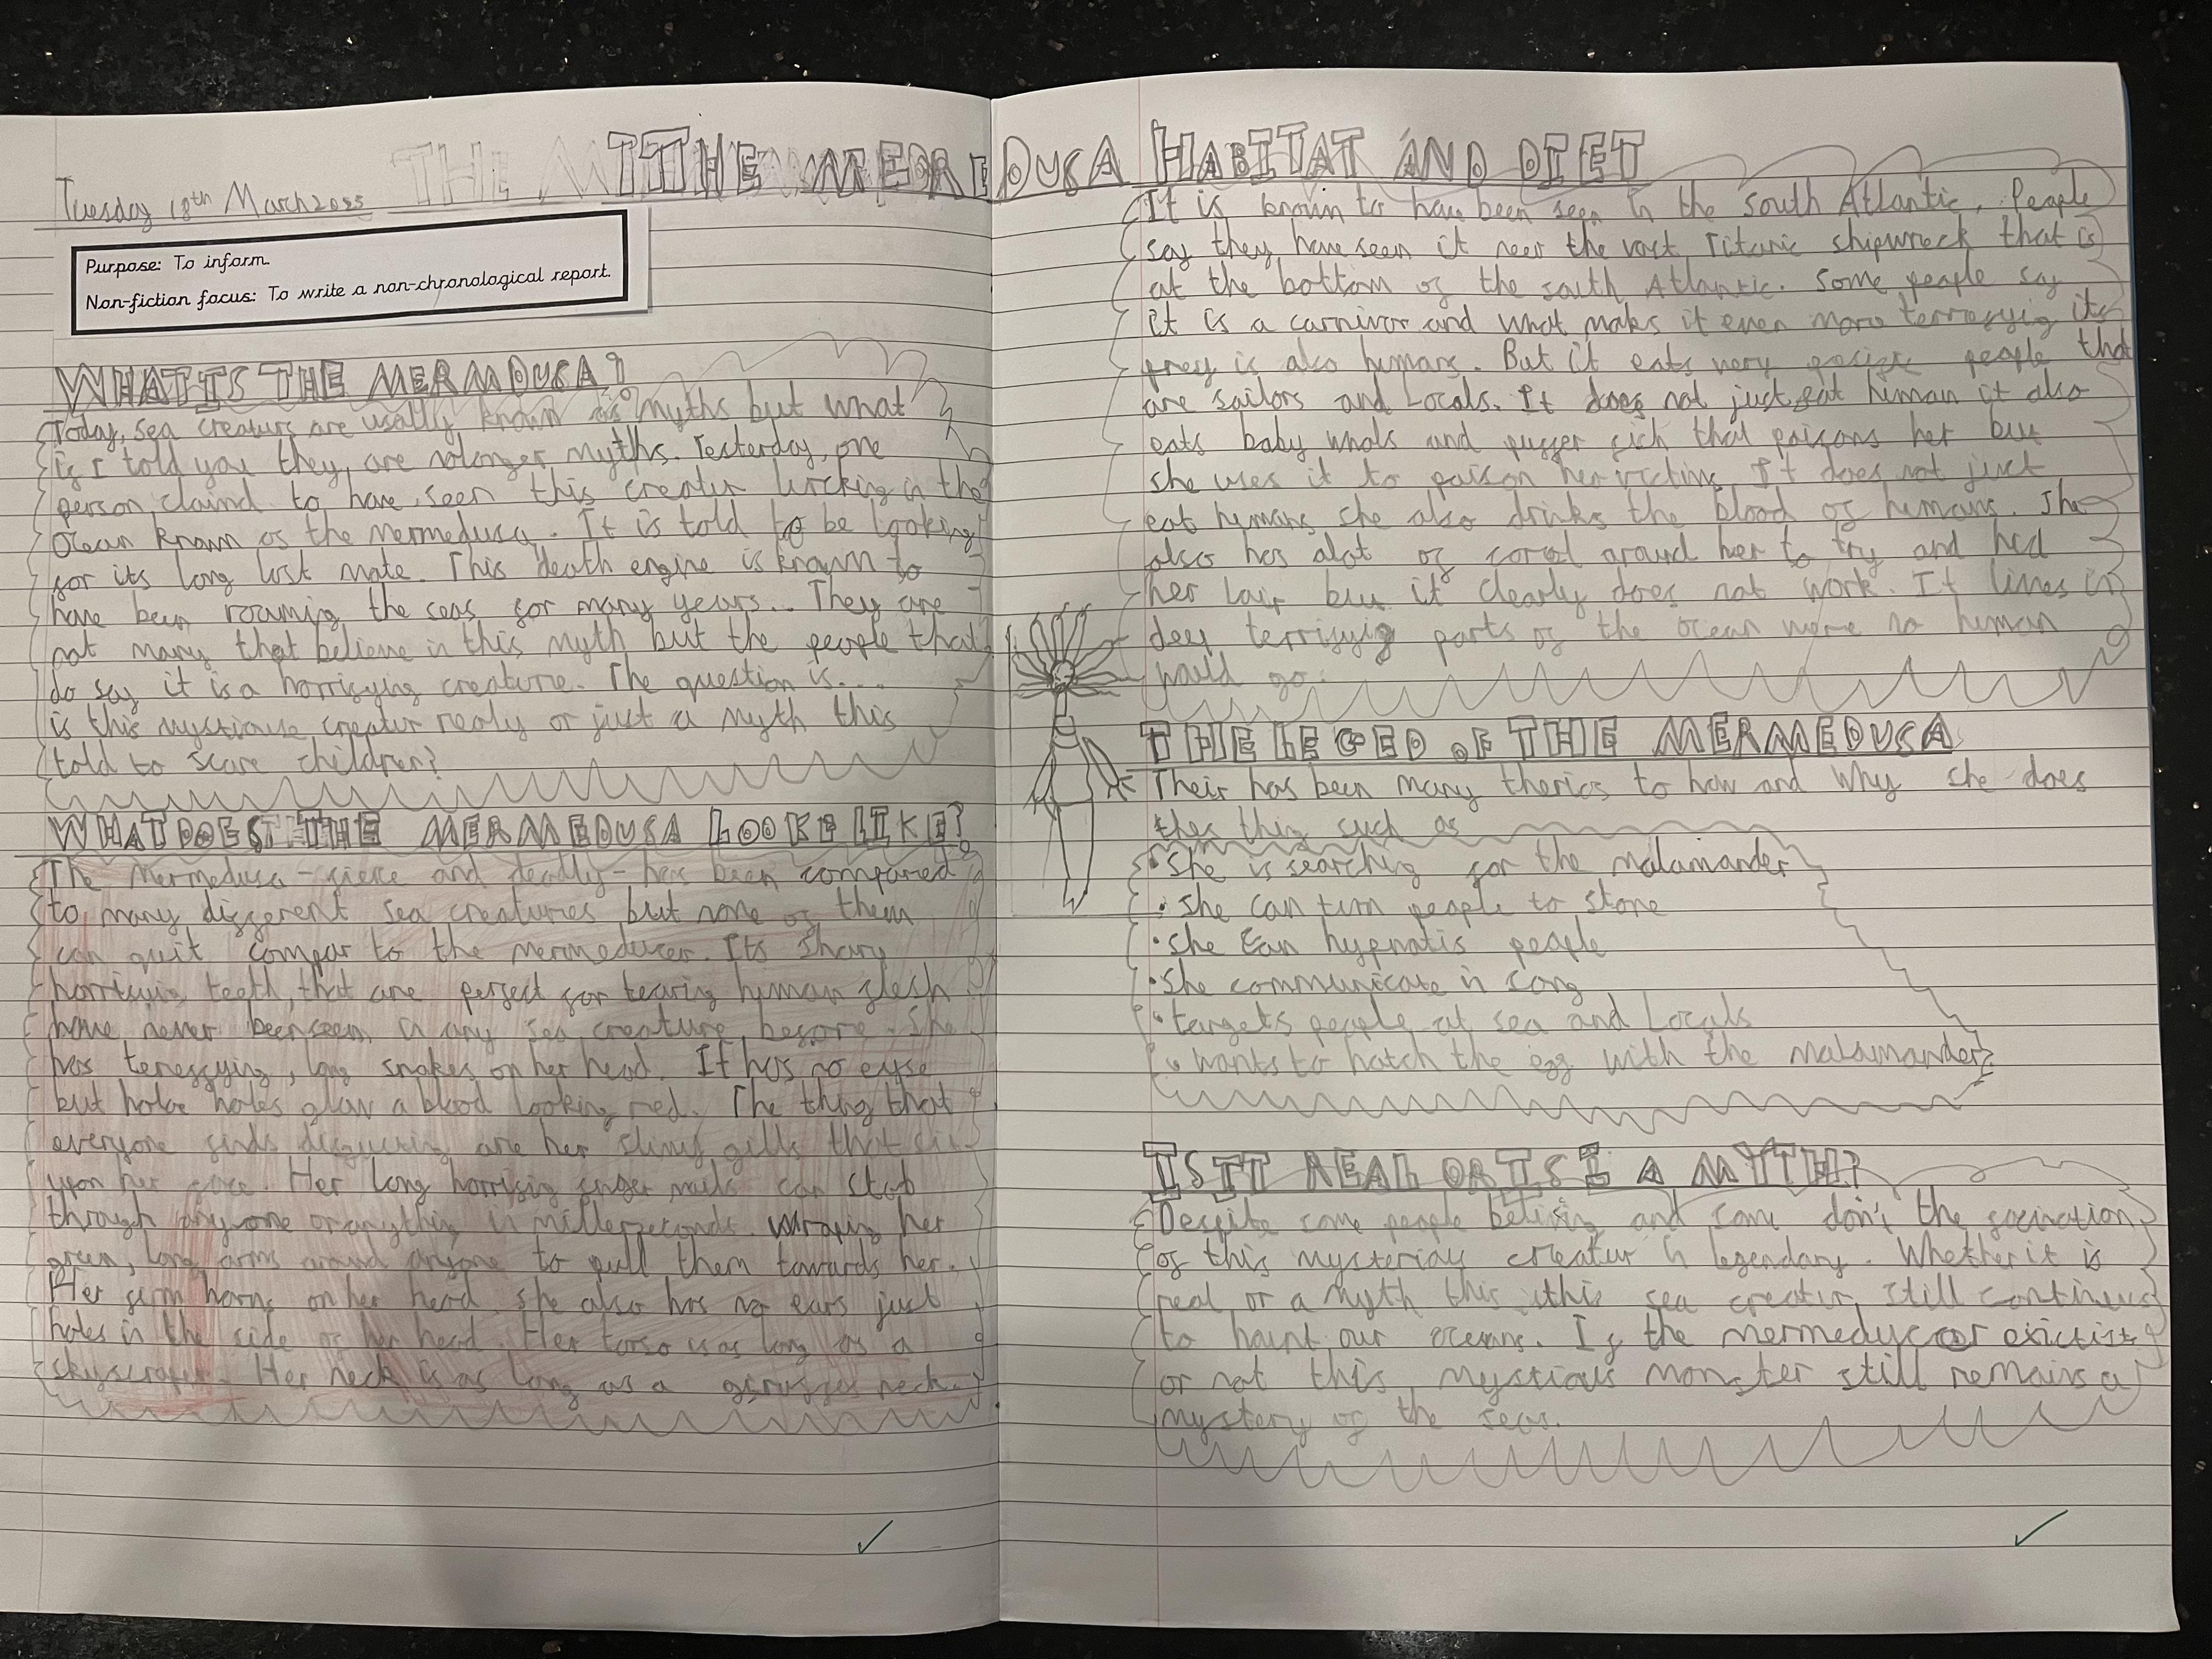 Tuesday 18th March 2025
THE MERMEDUSA
Purpose: To inform.
Non-fiction focus: To write a non-chronological report.
WHAT IS THE MERMDUSA?
Today, sea creaturs are usally known as myths but what
if I told you they, are nolonger myths. Yesterday, one
person claimd to have seen this creatur lurcking in the
Ocean known as the Mermedusa. It is told to be looking
for its long lost mate. This death engine is known to
have been roaming the seas for many years... They are
not many that believe in this myth but the people that
do say it is a horrifying creature. The question is....
is this mystiouse creatur realy or just a myth this
told to scare children?
WHAT DOES THE MERMEDUSA LOOK LIKE?
The Mermedusa - fierce and deadly - has been compared
to many different sea creatures but none of them
can quit compar to the mermeducer. Its sharp
horrifying teeth, that are perfect for tearing human flesh
have never been seen in any sea creature before. She
has tereffying, long snakes on her head. It has no eyse
but holoe holes glow a blood looking red. The thing that
everyone finds disguering are her slimy gills that sit
upon her face. Her long horrifing finger nails can stab
through anyone or anything in millerseconds. Wraping her
green, long arms around anyone to pull them towards her.
Her firm horns on her head. She also has no ears just
holes in the side of her head. Her torso is as long as a
skyscraper. Her neck is as long as a neck.
HABITAT AND DIET
It is known to have been seen in the south Atlantic. People
say they have seen it neer the vast Titanic shipwreck that is
at the bottom of the south Atlantic. Some people say
it is a carnivor and what makes it even more terrefying its
prey is also humans. But it eats very people that
are sailors and Locals. It does not just eat human it also
eats baby whals and puffer fich that poisons her but
she uses it to poison her victims. It does not just
eat humans she also drinks the blood of humans. She
also has alot of corol around her to try and hid
her lair but it clearly does not work. It lives in
deep terrifying parts of the ocean were no human
would go.
THE LEGED OF THE MERMEDUSA
Their has been many theries to how and why she does
thes thing such as
• She is searching for the malamander
• She can turn people to stone
• She can hypnotis people
• She communicate in song
• targets people at sea and Locals
• wants to hatch the egg with the malamander
IS IT REAL OR IS I A MYTH?
Despite some people beliving and some don't the
of this mysterious creatur is legendary. Whether it is
real or a myth this this sea creatur, still continus
to haunt our oceans. If the mermeducer
or not this mystious monster still remains a
mystery of the seas.